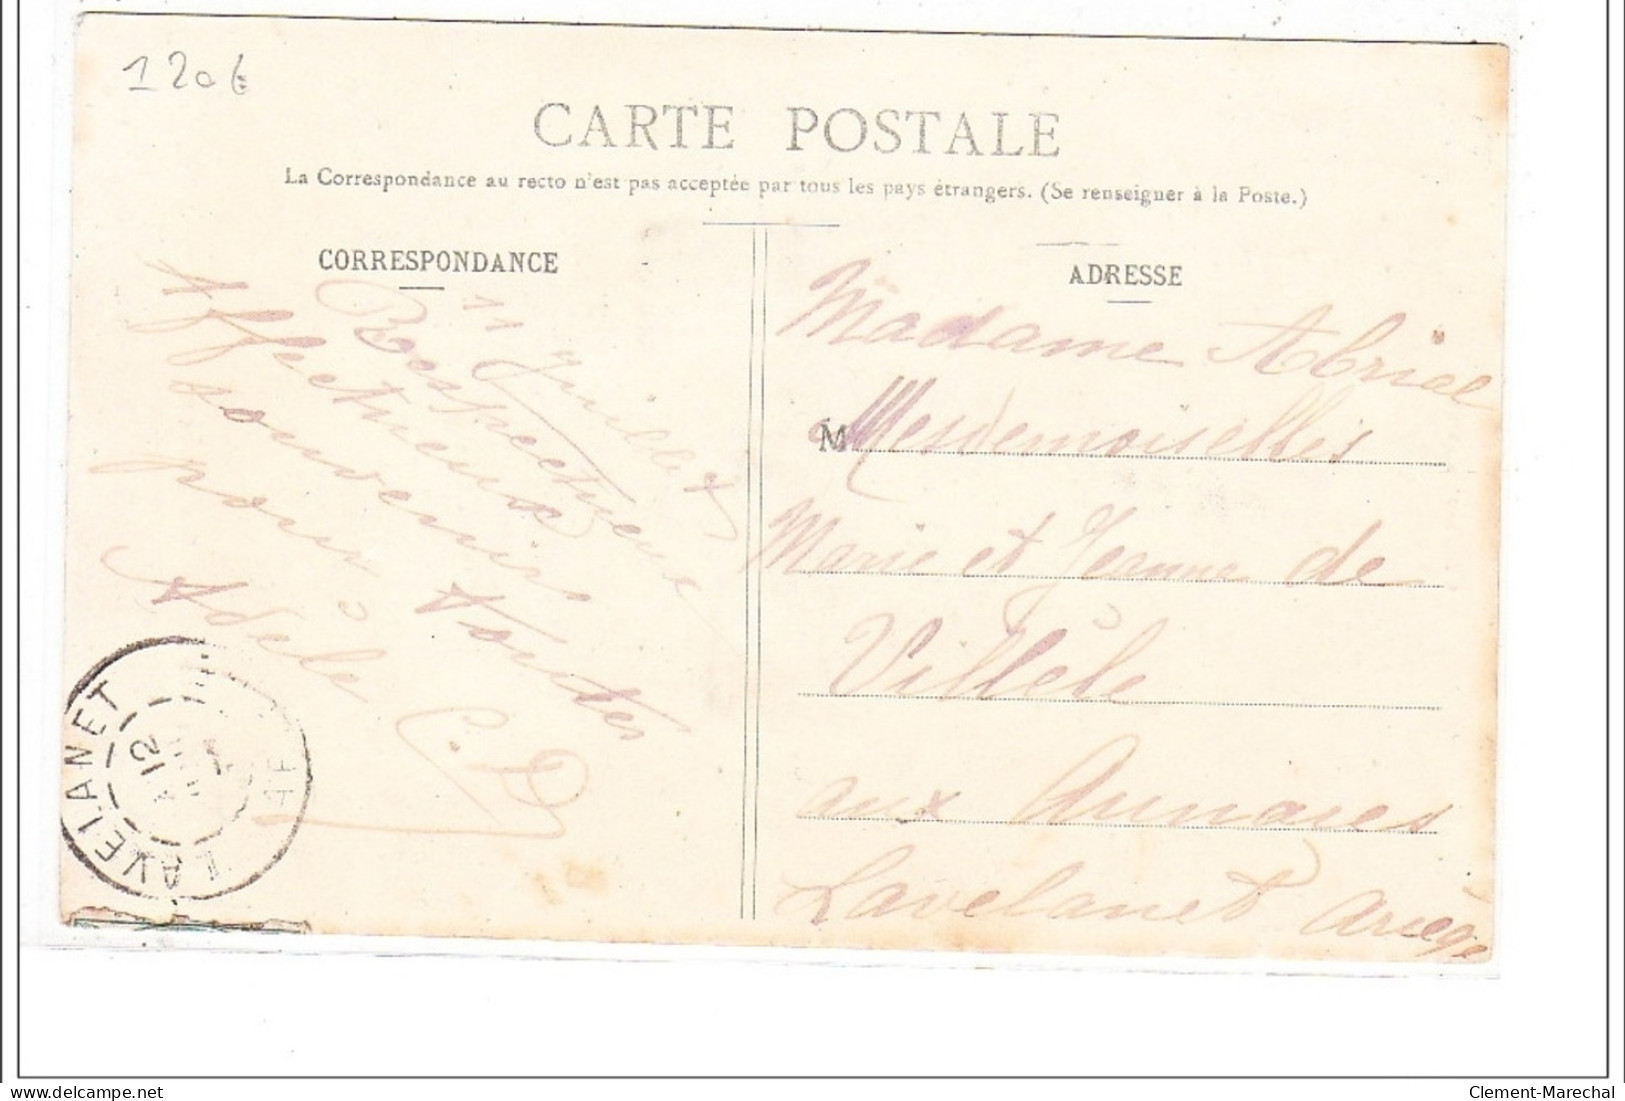 120€
CARTE POSTALE
La Correspondance au recto n'est pas acceptée par tous les pays étrangers. (Se renseigner à la Poste.)
CORRESPONDANCE
11 Juillet
Respectueux
Affectueux
souvenirs
pour toutes
Adèle
C. D
LAVELANET
12
ADRESSE
Madame Abrial
M Mesdemoiselles
Marie et Jeanne de
Villèle
aux
Lavelanet Ariège
delcampe.net
Clement-Marechal